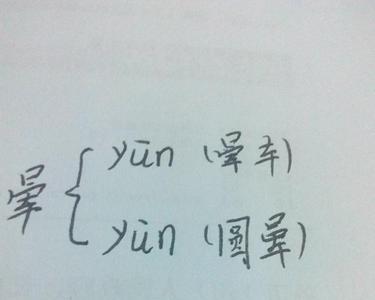 晕
yūn (晕车)
yūn (圆晕)